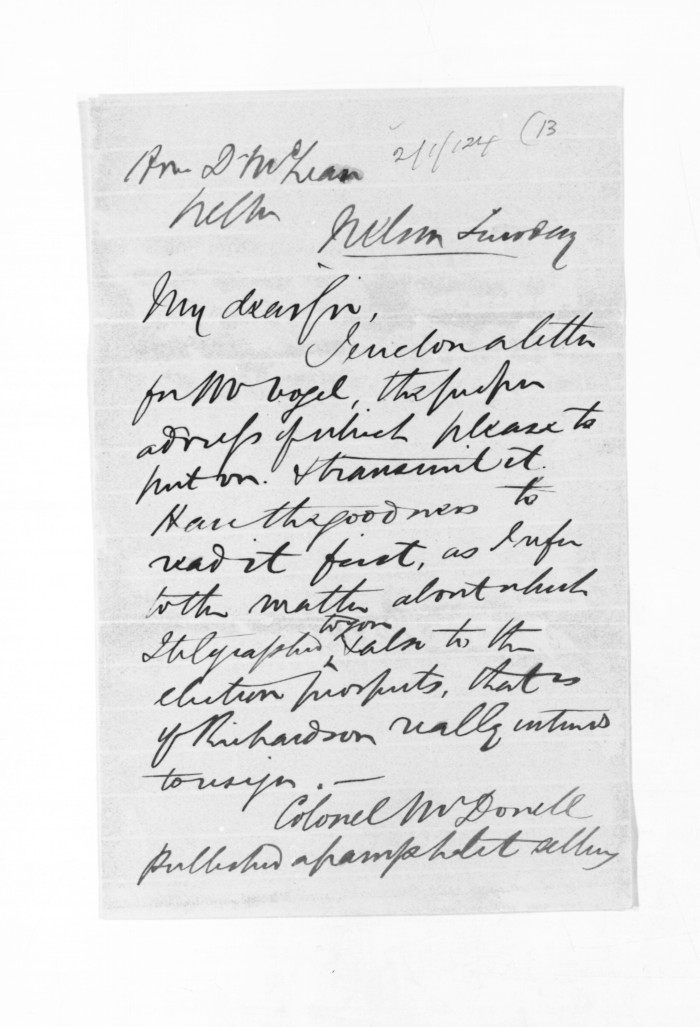 2/1/124 (13
Hon D McLean
Nelson Tuesday
My dear Sir,
I enclose a letter
for Mr Vogel, the proper
address of which please to
put on. & transmit it.
Have the goodness to
read it first, as I refer
to the matter about which
I telegraphed to you & also to the
election prospects, that is
if Richardson really intends
to resign. —
Colonel McDonell
published a pamphlet selling